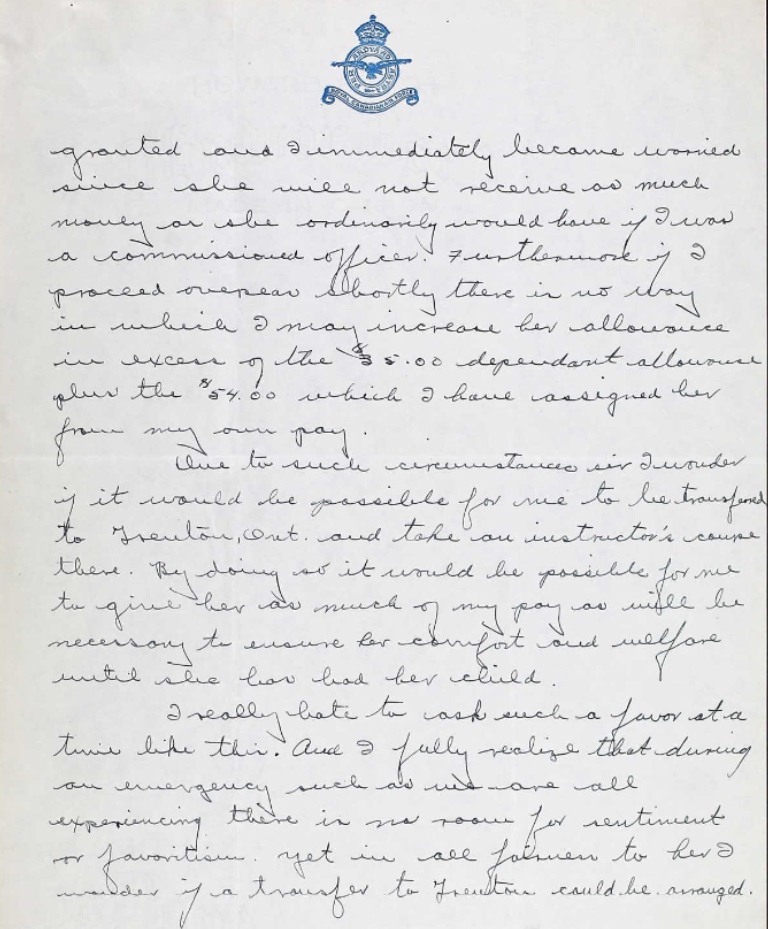 PER ARDVA AD ASTRA
ROYAL CANADIAN AIR FORCE
granted and I immediately become worried
since she will not receive as much
money as she ordinarily would have if I was
a commissioned officer. Furthermore if I
proceed overseas shortly there is no way
in which I may increase her allowance
in excess of the $35.00 dependant allowance
plus the $54.00 which I have assigned her
from my own pay.
Due to such circumstances sir I wonder
if it would be possible for me to be transferred
to Trenton, Ont. and take an instructor's course
there. By doing so it would be possible for me
to give her as much of my pay as will be
necessary to ensure her comfort and welfare
until she has had her child.
I really hate to ask such a favor at a
time like this. And I fully realize that during
an emergency such as we are all
experiencing there is no room for sentiment
or favoritism. Yet in all fairness to her I
wonder if a transfer to Trenton could be arranged.